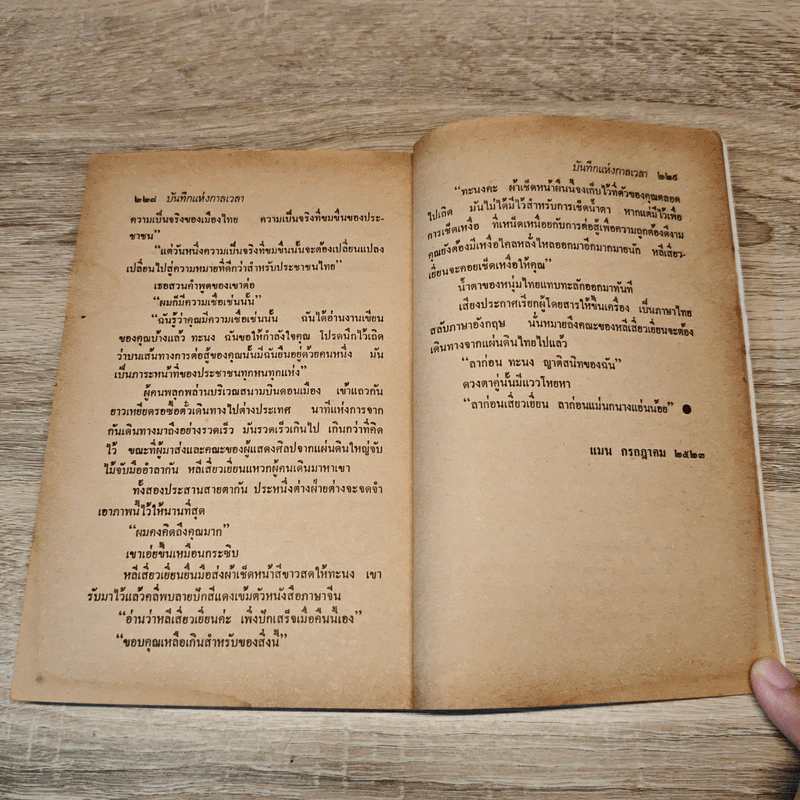 ๒๒๘ บันทึกแห่งกาลเวลา
ความเป็นจริงของเมืองไทย ความเป็นจริงที่ขมขื่นของประ-
ชาชน”
“แต่วันหนึ่งความเป็นจริงที่ขมขื่นนั้นจะต้องเปลี่ยนแปลง
เปลี่ยนไปสู่ความหมายที่ดีกว่าสำหรับประชาชนไทย”
เธอสวนคำพูดของเขาต่อ
“ผมก็มีความเชื่อเช่นนั้น”
“ฉันรู้ว่าคุณมีความเชื่อเช่นนั้น ฉันได้อ่านงานเขียน
ของคุณบ้างแล้ว ทะนง ฉันขอให้กำลังใจคุณ โปรดนึกไว้เถิด
ว่าบนเส้นทางการต่อสู้ของคุณนั้นมีฉันยืนอยู่ด้วยคนหนึ่ง มัน
เป็นภาระหน้าที่ของประชาชนทุกหนทุกแห่ง”
ผู้คนพลุกพล่านบริเวณสนามบินดอนเมือง เข้าแถวกัน
ยาวเหยียดรอซื้อตั๋วเดินทางไปต่างประเทศ นาทีแห่งการจาก
กันเดินทางมาถึงอย่างรวดเร็ว มันรวดเร็วเกินไป เกินกว่าที่คิด
ไว้ ขณะที่ผู้มาส่งและคณะของผู้แสดงศิลปจากแผ่นดินใหญ่จับ
ไม้จับมืออำลากัน หลีเสี่ยวเยี่ยนแหวกผู้คนเดินมาหาเขา
ทั้งสองประสานสายตากัน ประหนึ่งต่างฝ่ายต่างจะจดจำ
เอาภาพนี้ไว้ให้นานที่สุด
“ผมคงคิดถึงคุณมาก”
เขาเอ่ยขึ้นเหมือนกระซิบ
หลีเสี่ยวเยี่ยนยื่นมือส่งผ้าเช็ดหน้าสีขาวสดให้ทะนง เขา
รับมาไว้แล้วคลี่พบลายปักสีแดงเข้มตัวหนังสือภาษาจีน
“อ่านว่าหลีเสี่ยวเยี่ยนค่ะ เพิ่งปักเสร็จเมื่อคืนนี้เอง”
“ขอบคุณเหลือเกินสำหรับของสิ่งนี้”
บันทึกแห่งกาลเวลา ๒๒๙
“ทะนงคะ ผ้าเช็ดหน้าผืนนี้จงเก็บไว้ที่ตัวของคุณตลอด
ไปเถิด มันไม่ได้มีไว้สำหรับการเช็ดน้ำตา หากแต่มีไว้เพื่อ
การเช็ดเหงื่อ ที่เหน็ดเหนื่อยกับการต่อสู้เพื่อความถูกต้องดีงาม
คุณยังต้องมีเหงื่อไคลหลั่งไหลออกมาอีกมากมายนัก หลีเสี่ยว-
เยี่ยนจะคอยเช็ดเหงื่อให้คุณ”
น้ำตาของหนุ่มไทยแทบทะลักออกมาทันที
เสียงประกาศเรียกผู้โดยสารให้ขึ้นเครื่อง เป็นภาษาไทย
สลับภาษาอังกฤษ นั่นหมายถึงคณะของหลีเสี่ยวเยี่ยนจะต้อง
เดินทางจากแผ่นดินไทยไปแล้ว
“ลาก่อน ทะนง ญาติสนิทของฉัน”
ดวงตาคู่นั้นมีแววโหยหา
“ลาก่อนเสี่ยวเยี่ยน ลาก่อนแม่นกนางแอ่นน้อย” ●
แมน กรกฎาคม ๒๕๒๓